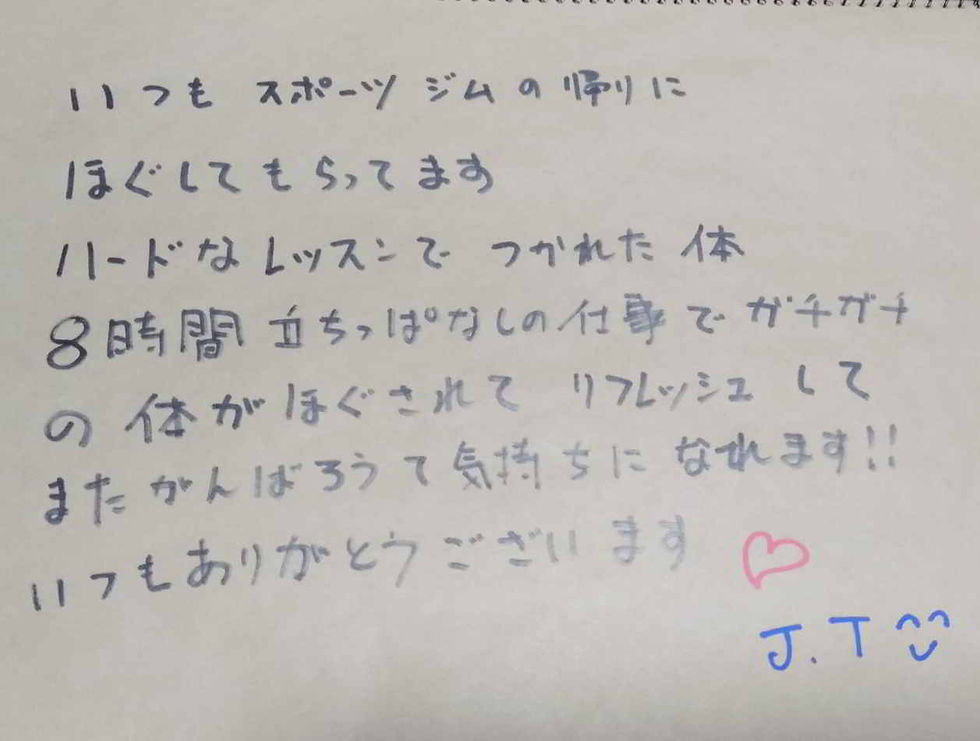 いつも スポーツ ジムの帰りに
ほぐしてもらってます
ハードなレッスンで つかれた 体
8時間 立ちっぱなしの仕事で ガチガチ
の 体が ほぐされて リフレッシュ して
また がんばろうて 気持ちに なれます!!
いつもありがとうございます ♡
J.T